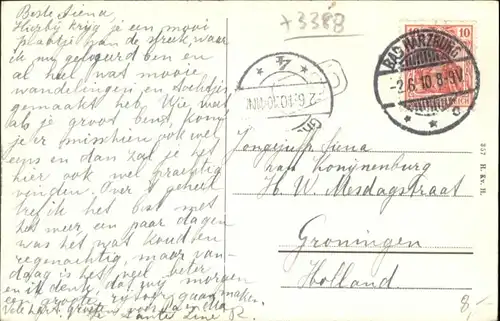 Beste Siena,
Hierbij krijg je een mooi
plaatje van de streek, waar
ik nu gelogeerd ben en
al heel wat mooie
wandelingen en tochtjes
gemaakt heb. Wie weet
als je groot bent, kom
je er misschien ook wel
eens en dan zal je het
hier ook wel prachtig
vinden. Over 't geheel
tref ik het best met
het weer, een paar dagen
was het wat koud en
regenachtig, maar van-
daag is het veel beter
en ik denk, dat wij morgen
een groote rijtoer gaan maken.
Vele hart. groeten voor je en Ma
Je tante Line
+3388
10
BAD HARZBURG
-2.6.10.8-9V
c
2.6.10
Jongejuf. Siena
van Konijnenburg
H. W. Mesdagstraat
Groningen
Holland
357 H. Kv. H.
8,-